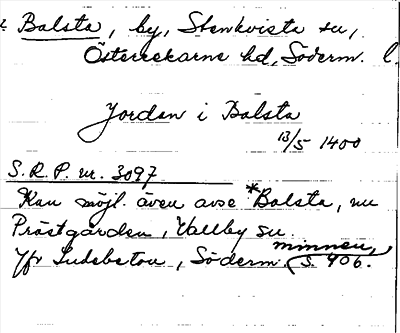 Balsta, by, Stenkvista sn,
Österrekarne hd, Söderm. l.
Jorden i Balsta
13/5 1400
S.R.P. nr. 3097
Kan möjl. även avse *Balsta, nu
Prästgården, Vallby sn.
Jfr Ludebeton, Söderm. minnen, s. 406.